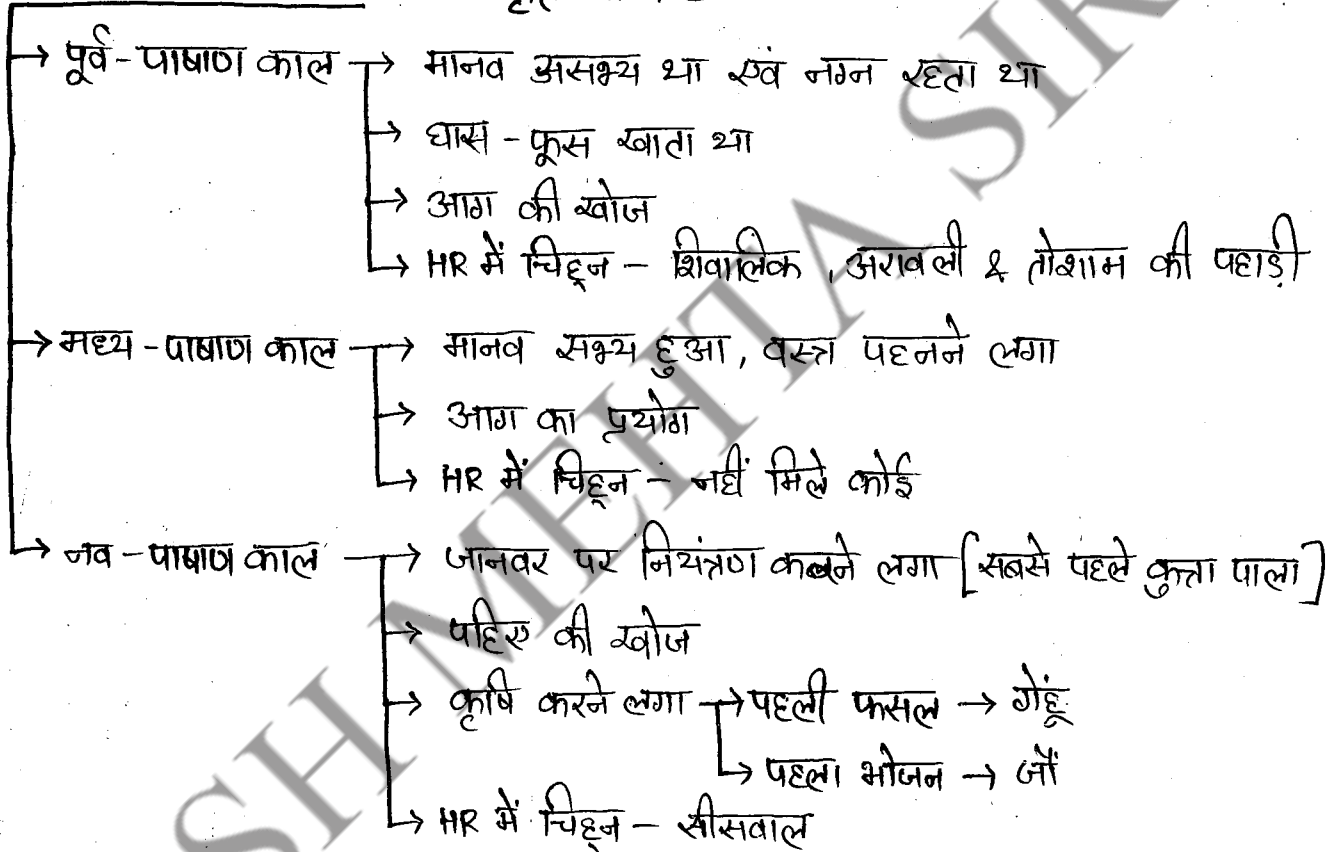 → पूर्व-पाषाण काल → मानव असभ्य था एवं नग्न रहता था
→ घास-फूस खाता था
→ आग की खोज
→ HR में चिह्न - शिवालिक, अरावली & तोशाम की पहाड़ी
→ मध्य-पाषाण काल → मानव सभ्य हुआ, वस्त्र पहनने लगा
→ आग का प्रयोग
→ HR में चिह्न - नहीं मिले कोई
→ नव-पाषाण काल → जानवर पर नियंत्रण करने लगा [सबसे पहले कुत्ता पाला]
→ पहिए की खोज
→ कृषि करने लगा → पहली फसल → गेंहूं
→ पहला भोजन → जौं
→ HR में चिह्न - सीसवाल
SH MEHTA SIR